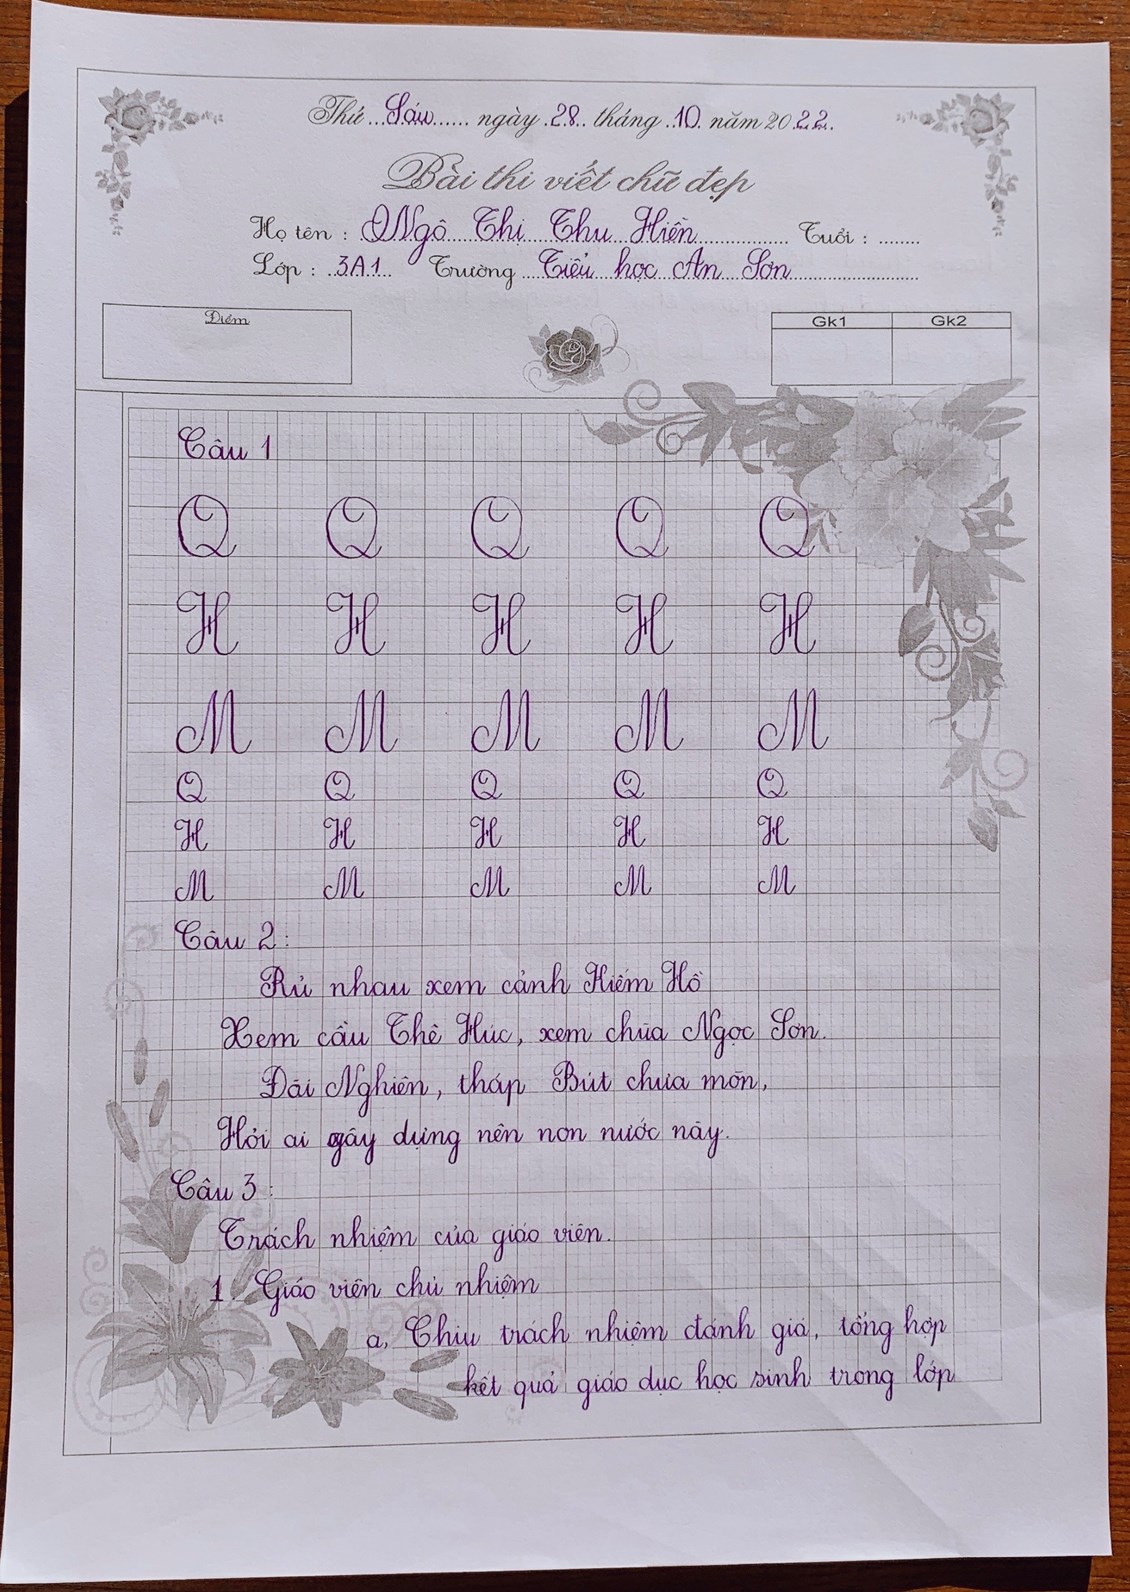 Thứ Sáu ngày 28 tháng 10 năm 2022.
Bài thi viết chữ đẹp
Họ tên : Ngô Thị Thu Hiền Tuổi :
Lớp : 3A1 Trường Tiểu học An Sơn
Điểm
Gk1 Gk2
Câu 1
Q Q Q Q Q
H H H H H
M M M M M
Q Q Q Q Q
H H H H H
M M M M M
Câu 2 :
Rủ nhau xem cảnh Kiếm Hồ
Xem cầu Thê Húc, xem chùa Ngọc Sơn.
Đài Nghiên, tháp Bút chưa mòn,
Hỏi ai gây dựng nên non nước này.
Câu 3 :
Trách nhiệm của giáo viên.
1. Giáo viên chủ nhiệm
a, Chịu trách nhiệm đánh giá, tổng hợp
kết quả giáo dục học sinh trong lớp